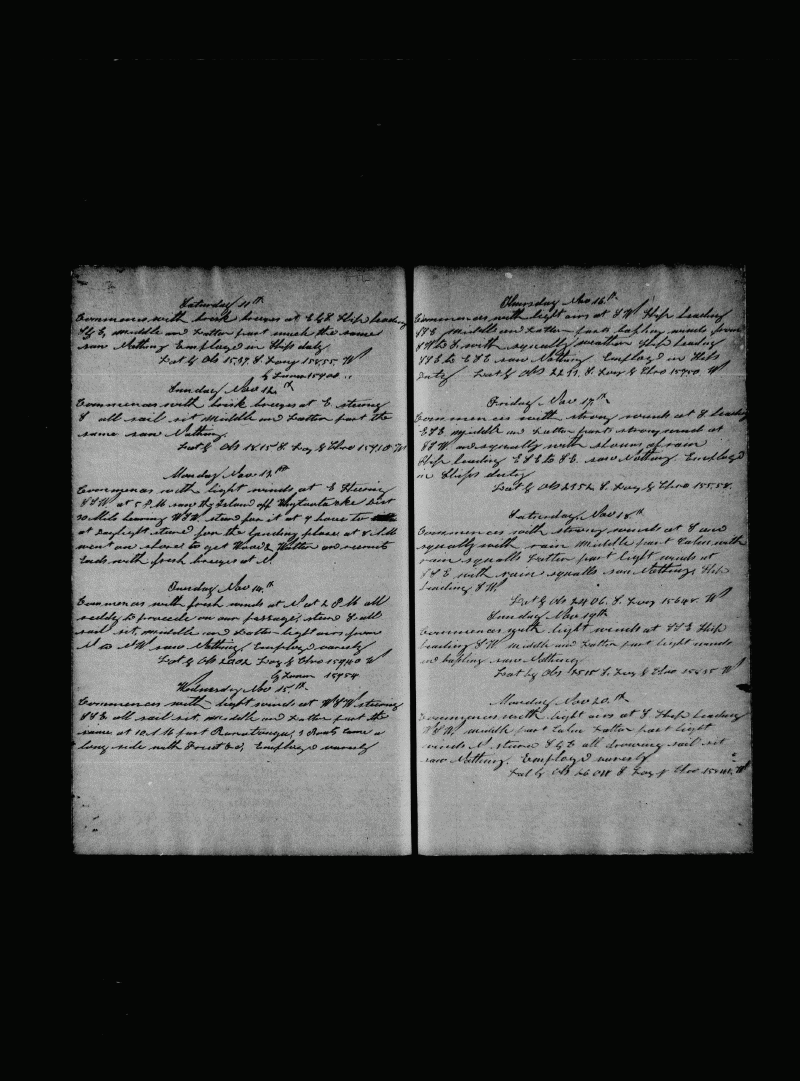 Saturday 11th
Commences with brisk breezes at E & S Ship heading
S & E, middle and Latter part much the same
saw Nothing Employed in Ships duty
Lat by Obs 15.39. S. Long 158.55. W
by Lunar
Sunday Nov 12th
Commences with brisk breezes at E steering
S all sail set middle and Latter part the
same saw Nothing
Lat by Obs 18.15 S Long by Chro 159.10 W
Monday Nov 13th
Commences with light winds at E Steering
SSW. at 5 P.M saw the Island off dist
30 Mils bearing WSW, stead for it at 9 hove to
at daylight steered for the Landing place, at 8 A.M
went on shore to get Wood & Water and recruits
Ends with fresh breezes at N.
Tuesday Nov 14th
Commences with fresh winds at N at 2 P.M all
ready to proceede on our passage, steered S all
sail set, middle and Latter light airs from
N to NW saw Nothing Employed variously
Lat by Obs 20.02 Long by Chro 159.40 W
by Lunar 159.54
Wednesday Nov 15th
Commences with light winds at WSW steering
SSE all sail set middle and Latter part the
same at 10 A.M past Raratongue, 3 Boats came a
long side with Fruit &c, Employed variously
Thursday Nov 16th
Commences with light airs at SW Ship heading
SSE Middle and Latter parts baffling winds from
SW to S. with squally weather Ship heading
SSE to ESE saw Nothing Employed in Ships
duty Lat by Obs S. Long by Chro W
Friday Nov 17th
Commences with strong winds at S heading
ESE middle and Latter parts strong wind at
SSW and squally with showers of rain
Ship heading ESE to SE. saw Nothing Employed
in Ships duty
Lat by Obs 23.52 S Long by Chro 155.58.
Saturday Nov 18th
Commences with strong winds at S and
squally with rain Middle part Calm with
rain squalls Latter part light winds at
SSE with rain squalls saw Nothing, Ship
heading SW.
Lat by Obs 24.06. S. Long 156.42. W
Sunday Nov 19th
Commences with light winds at SSE Ship
heading SW middle and Latter part light winds
and baffling saw Nothing
Lat by Obs 25.15 S. Long by Chro W
Monday Nov 20th
Commences with light airs at S Ship heading
WSW, middle part Calm Latter part light
winds N steered S & E all drawing sail set
saw Nothing. Employed variously
Lat by Obs 26.04 S Long by Chro W